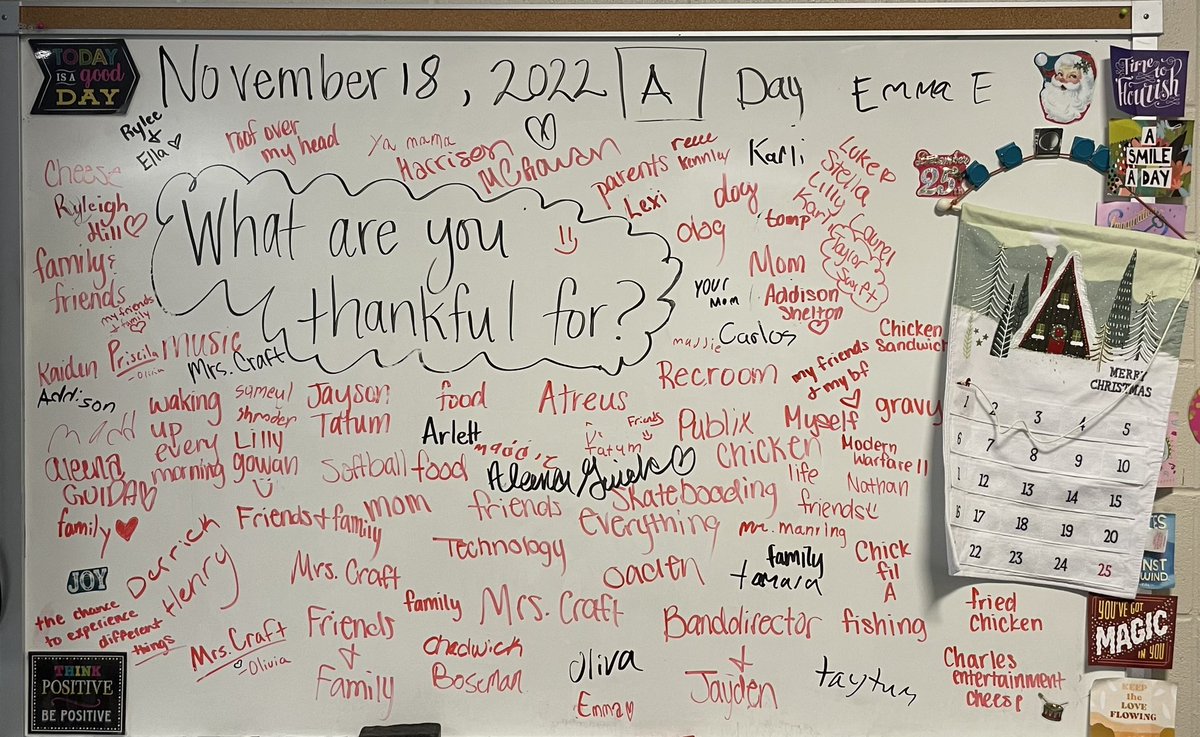 TODAY
IS A good
DAY
November 18, 2022 A Day Emma E
Time to
flourish
A
SMILE
A DAY
December
25
Rylee
+
Ella
roof over
my head
Ya mama
Harrison
McGhowan
parents
reece
Lexi
dog
Karli
Luke P
Stella
Lilly
Karly
Laurel
Taylor
Swift
Cheese
Ryleigh
Hill
family &
friends
my friends
+ family
What are you
thankful for?
dog
tomp
Mom
your
Mom
Addison
Shelton
massie
Carlos
Chicken
Sandwich
Kaiden
Priscila
-Olivia
Music
Mrs. Craft
Addison
waking
up
every
morning
sameul
shroder
Lilly
gowan
Jayson
Tatum
food
Atreus
Recroom
my friends
+ my bf
Myself
gravy
Arlett
maddie
Friends
Tatum
Publix
chicken
Modern
Warfare II
aleena
GUIDA
Softball
food
Aleena Guida
Skateboading
life
Nathan
friends
family
Friends + family
mom
friends
everything
mr. manning
Technology
family
tamara
Chick
fil
A
JOY
Derrick
Henry
Mrs. Craft
oaclen
the chance
to experience
different
things
Mrs. Craft
-Olivia
Friends
+
Family
family
Mrs. Craft
chadwick
Boseman
Oliva
Emma
Bandodirector
+
Jayden
fishing
taytum
fried
chicken
Charles
entertainment
cheese
THINK
POSITIVE
BE POSITIVE
MERRY
CHRISTMAS
1 2 3 4 5
6 7 8 9 10
11 12 13 14 15
16 17 18 19 20
22 23 24 25
YOU'VE GOT
MAGIC
IN YOU
KEEP
the
LOVE
FLOWING